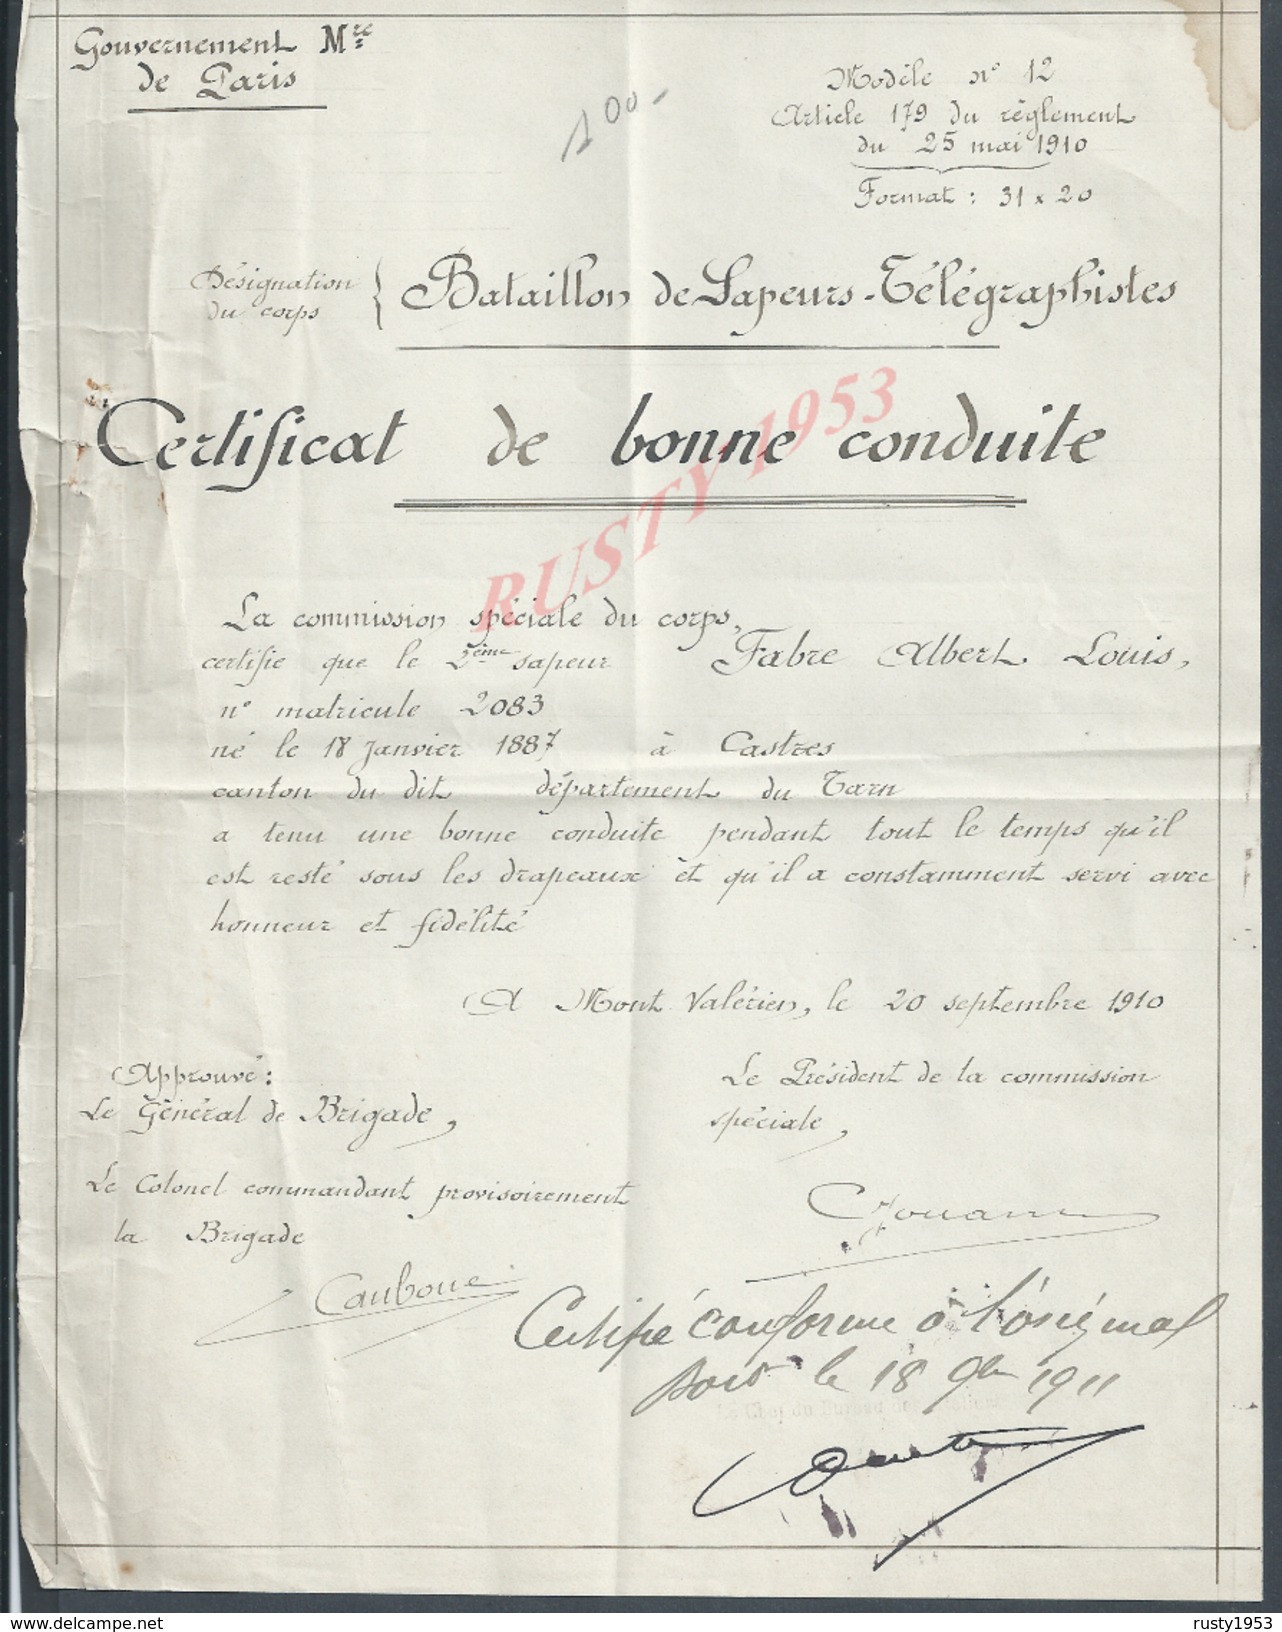 Gouvernement Mre
de Paris
Modèle no 12
Article 179 du règlement
du 25 mai 1910
Format : 31 x 20
Désignation
du corps
Bataillon de Sapeurs-Télégraphistes
Certificat de bonne conduite
RUSTY 1953
La commission spéciale du corps,
certifie que le 2ème sapeur Fabre Albert Louis,
no matricule 2083
né le 18 Janvier 1887 à Castres
canton du dit département du Tarn
a tenu une bonne conduite pendant tout le temps qu'il
est resté sous les drapeaux et qu'il a constamment servi avec
honneur et fidélité
A Mont Valérien, le 20 septembre 1910
Approuvé :
Le Général de Brigade,
Le Colonel commandant provisoirement
la Brigade
Le Président de la commission
spéciale,
Certifié conforme à l'original
le 18 9bre 1911
Le Chef du Bureau des
delcampe.net
rusty1953